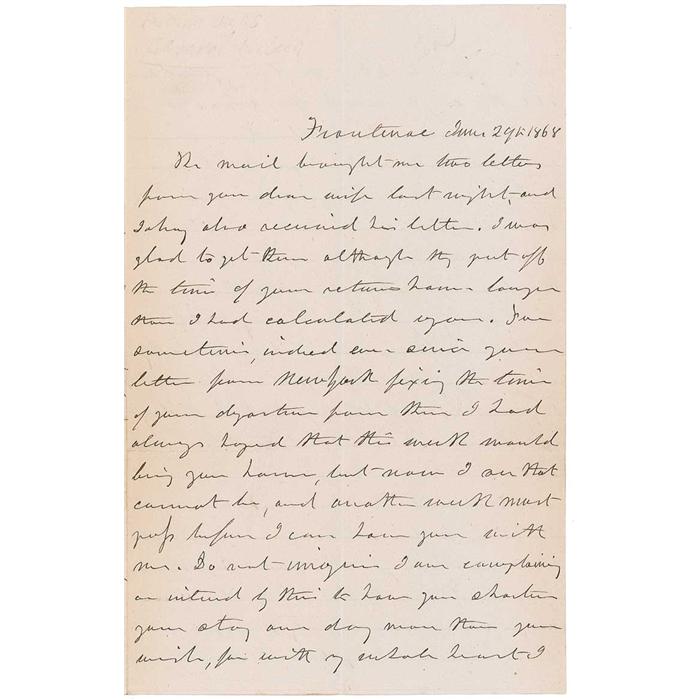 Frontenac June 29th 1868
The mail brought me two letters
from you dear wife last night, and
also received his letter. I was
glad to get them although they put off
the time of your return home longer
than I had calculated upon. For
sometime, indeed ever since your
letter from New York fixing the time
of your departure from there I had
always hoped that this week would
bring you home, but now I see that
cannot be, and another week must
pass before I can have you with
me. Do not imagine I am complaining
or intend by this to have you shorten
your stay one day more than you
wish, for with my whole heart I